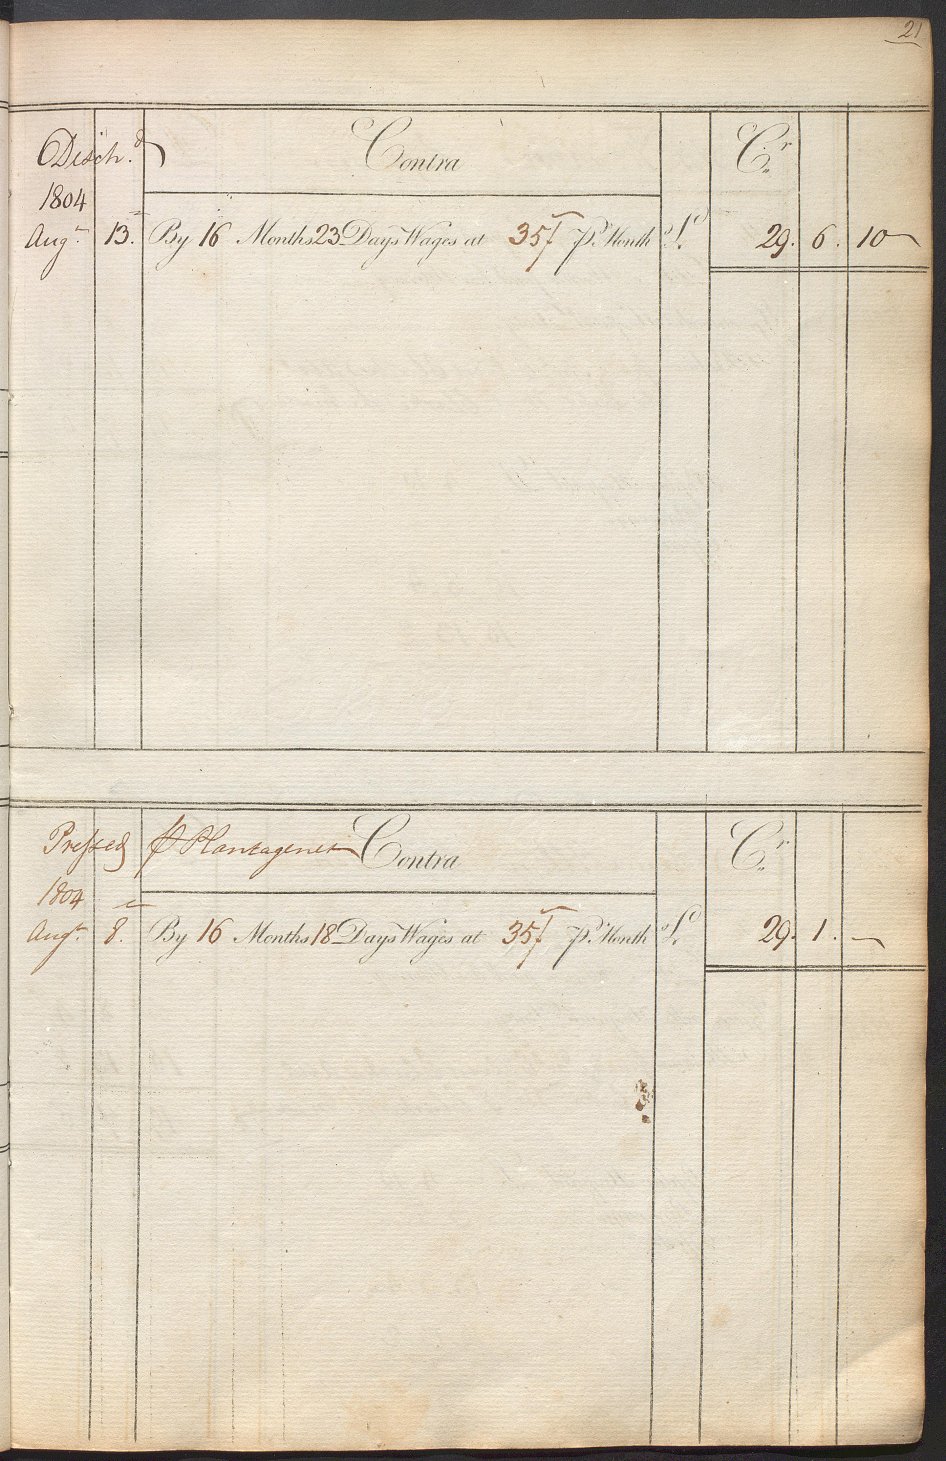 21
Disch.d Contra Cr
1804
Augt 13. By 16 Months 23 Days Wages at 35/ pr Month £. 29. 6. 10
Pressed p Plantagenet Contra Cr
1804
Augt 8. By 16 Months 18 Days Wages at 35/ pr Month £. 29. 1. —